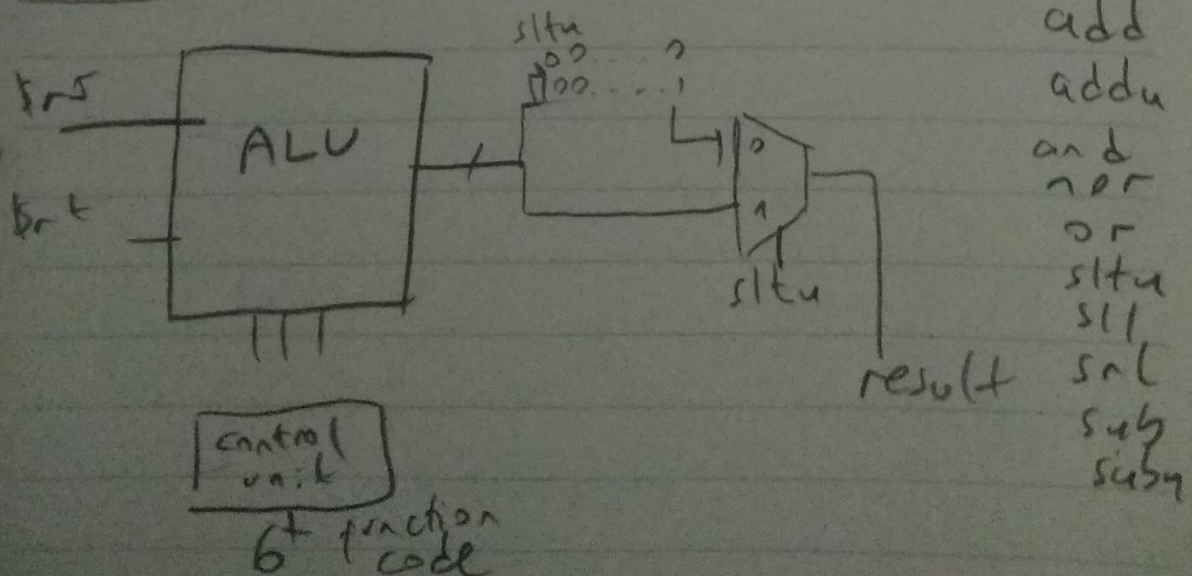 sltu
00....0
100....1
$rs
ALU
$rt
0
1
sltu
result
control
unit
6 function
code
add
addu
and
nor
or
sltu
sll
srl
sub
subu